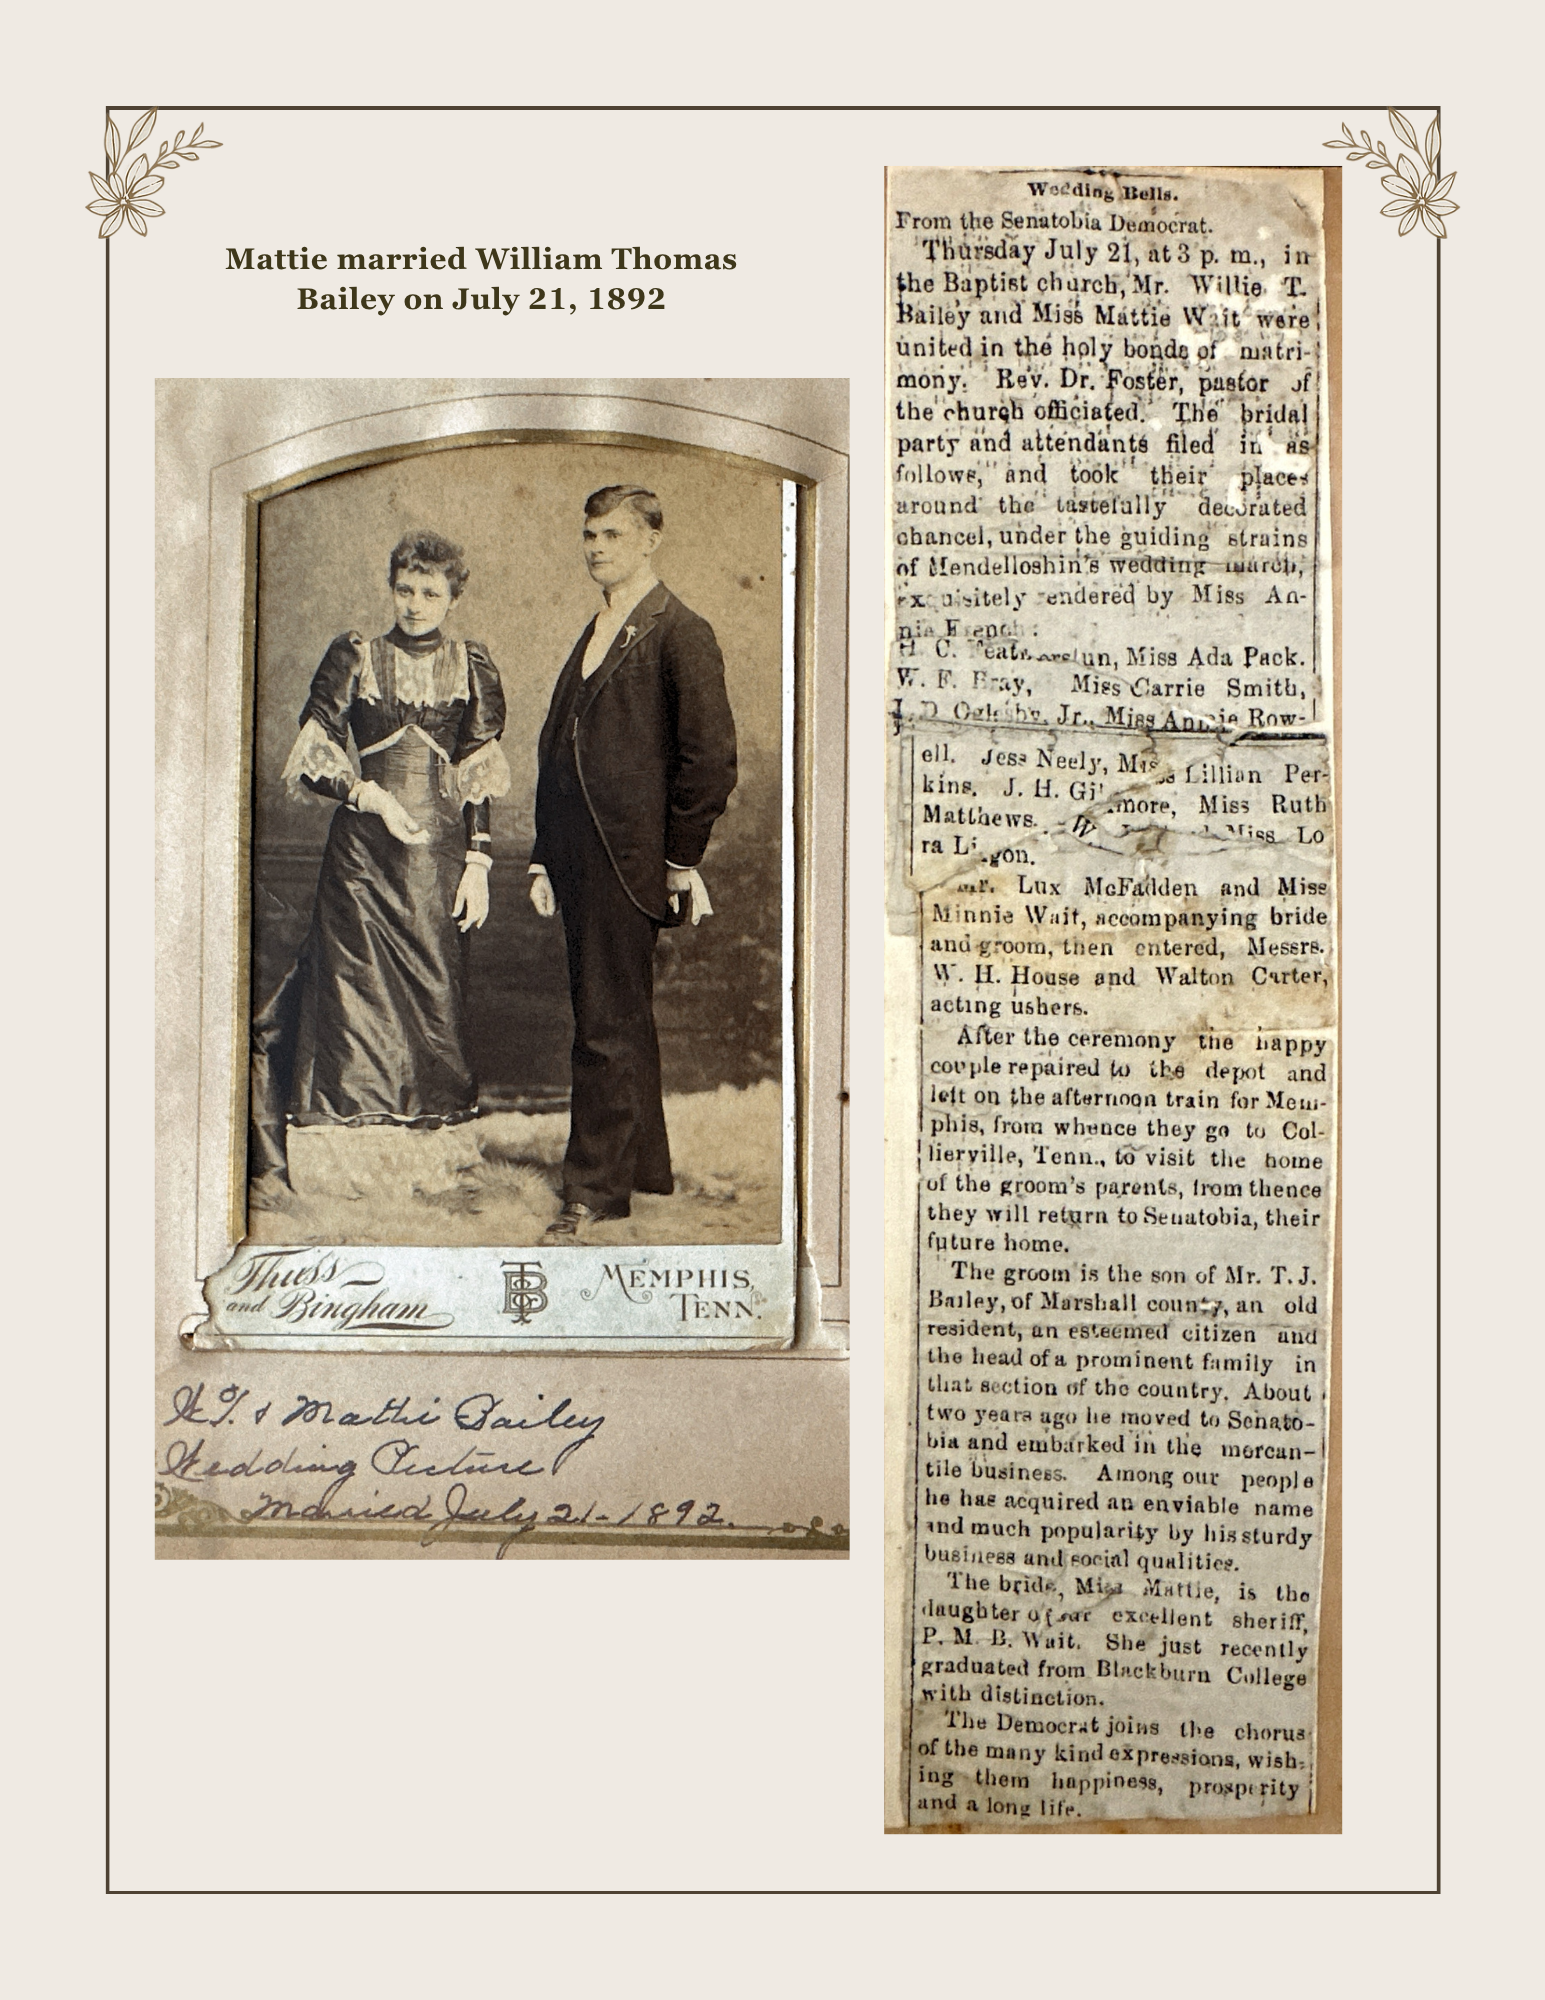 Mattie married William Thomas
Bailey on July 21, 1892
Thuss
and Bingham
TB
MEMPHIS,
TENN.
W.T. & Mattie Bailey
Wedding Picture
Married July 21-1892.
Wedding Bells.
From the Senatobia Democrat.
Thursday July 21, at 3 p. m., in
the Baptist church, Mr. Willie T.
Bailey and Miss Mattie Wait were
united in the holy bonds of matri-
mony. Rev. Dr. Foster, pastor of
the church officiated. The bridal
party and attendants filed in as
follows, and took their places
around the tastefully decorated
chancel, under the guiding strains
of Mendelloshin's wedding march,
exquisitely rendered by Miss An-
nie French:
H. C. Miss Ada Pack.
W. F. Bray, Miss Carrie Smith,
J. D. Oglesby, Jr., Miss Annie Row-
ell. Jess Neely, Miss Lillian Per-
kins. J. H. Gillmore, Miss Ruth
Matthews. W. Miss Lo
ra
Mr. Lux McFadden and Miss
Minnie Wait, accompanying bride
and groom, then entered, Messrs.
W. H. House and Walton Carter,
acting ushers.
After the ceremony the happy
couple repaired to the depot and
left on the afternoon train for Mem-
phis, from whence they go to Col-
lierville, Tenn., to visit the home
of the groom's parents, from thence
they will return to Senatobia, their
future home.
The groom is the son of Mr. T. J.
Bailey, of Marshall county, an old
resident, an esteemed citizen and
the head of a prominent family in
that section of the country. About
two years ago he moved to Senato-
bia and embarked in the mercan-
tile business. Among our people
he has acquired an enviable name
and much popularity by his sturdy
business and social qualities.
The bride, Miss Mattie, is the
daughter of our excellent sheriff,
P. M. B. Wait. She just recently
graduated from Blackburn College
with distinction.
The Democrat joins the chorus
of the many kind expressions, wish-
ing them happiness, prosperity
and a long life.